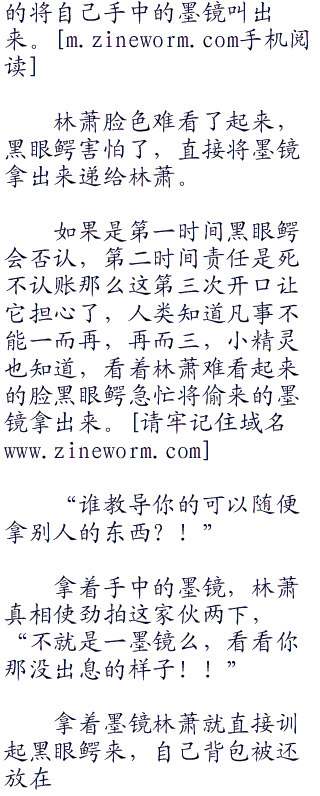 的将自己手中的墨镜叫出
来。[m.zineworm.com手机阅
读]
林萧脸色难看了起来，
黑眼鳄害怕了，直接将墨镜
拿出来递给林萧。
如果是第一时间黑眼鳄
会否认，第二时间责任是死
不认账那么这第三次开口让
它担心了，人类知道凡事不
能一而再，再而三，小精灵
也知道，看着林萧难看起来
的脸黑眼鳄急忙将偷来的墨
镜拿出来。[请牢记住域名
www.zineworm.com]
“谁教导你的可以随便
拿别人的东西？！”
拿着手中的墨镜，林萧
真相使劲拍这家伙两下，
“不就是一墨镜么，看看你
那没出息的样子！！”
拿着墨镜林萧就直接训
起黑眼鳄来，自己背包被还
放在